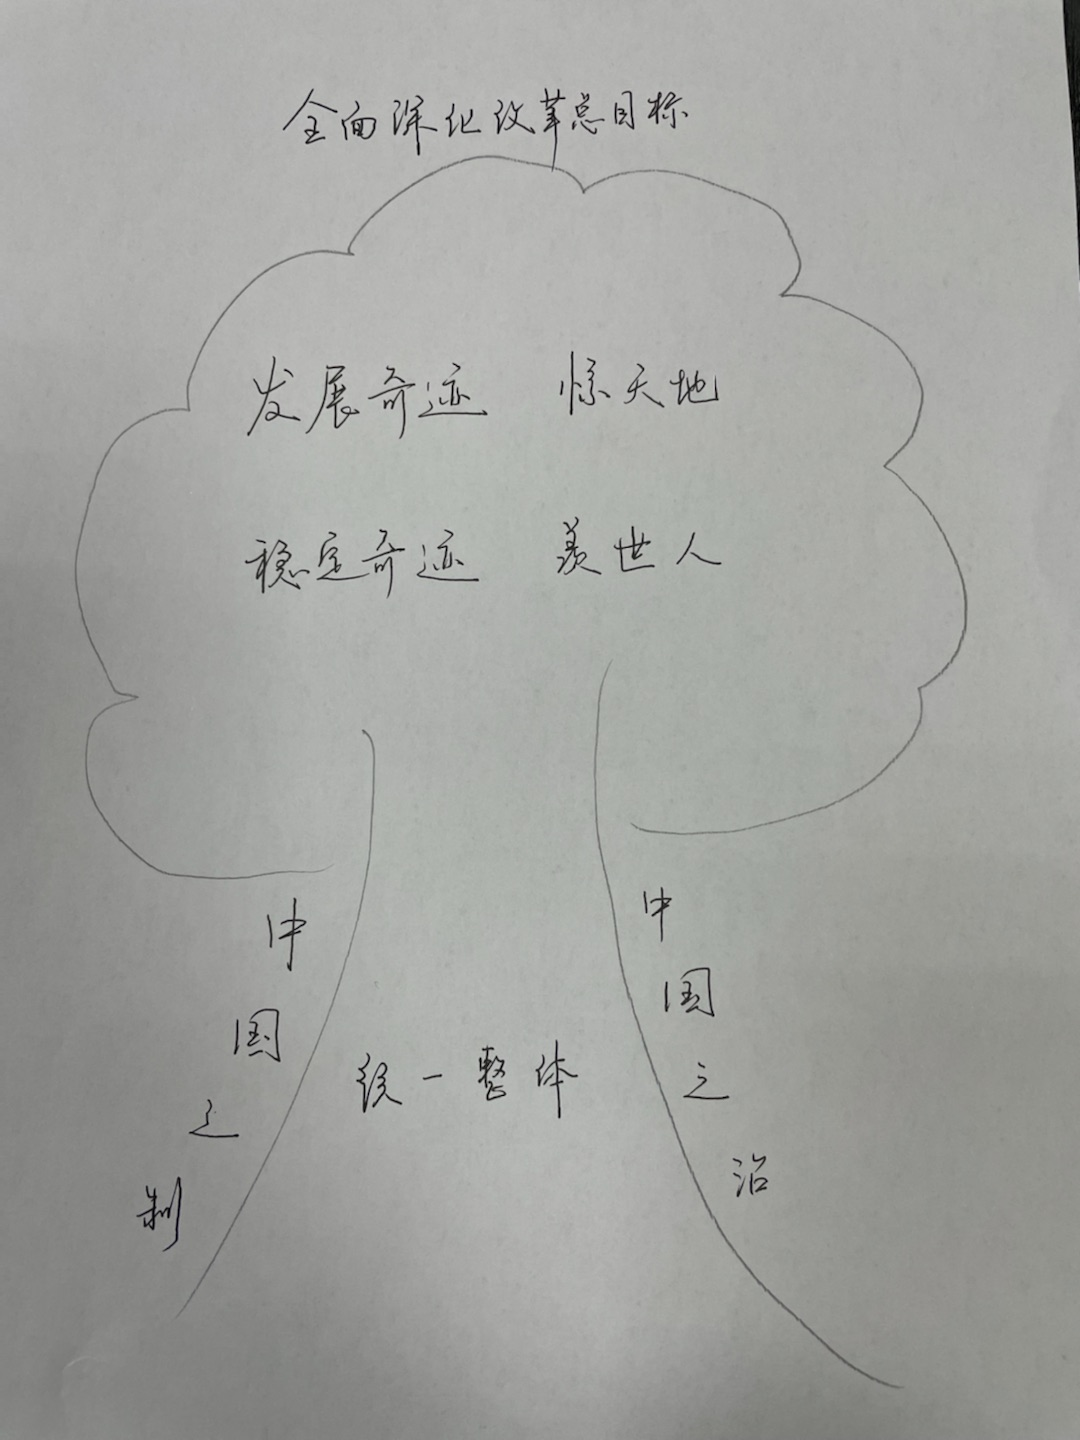 全面深化改革总目标
发展奇迹 惊天地
稳定奇迹 羡世人
中国之制
统一整体
中国之治